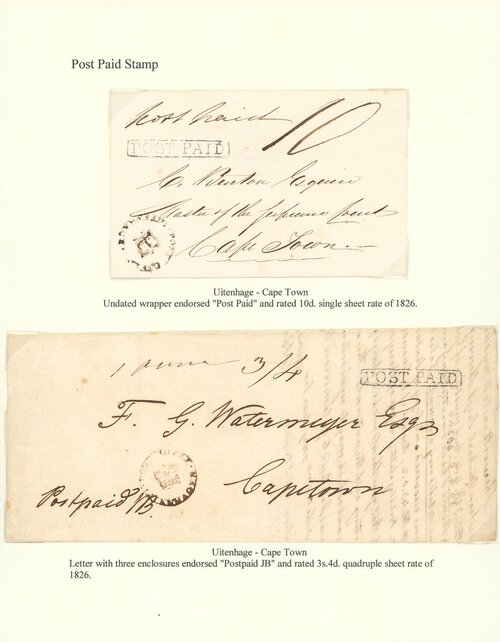 Post Paid Stamp
post paid 10
POST PAID
C. Burton Esquire
Master of the Supreme Court
Cape Town
Uitenhage - Cape Town
Undated wrapper endorsed "Post Paid" and rated 10d. single sheet rate of 1826.
3/4
POST PAID
F. G. Watermeyer Esqr
Capetown
Postpaid JB.
Uitenhage - Cape Town
Letter with three enclosures endorsed "Postpaid JB" and rated 3s.4d. quadruple sheet rate of
1826.